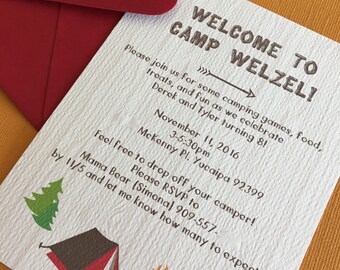 WELCOME TO
CAMP WELZEL!
Please join us for some camping games, food,
treats, and fun as we celebrate
Derek and Tyler turning 8!
November 11, 2016
3-5:30pm
McKenny Pl, Yucaipa 92399
Feel free to drop off your camper!
Please RSVP to
Mama Bear (Simona) 909-557-
by 11/5 and let me know how many to expect!